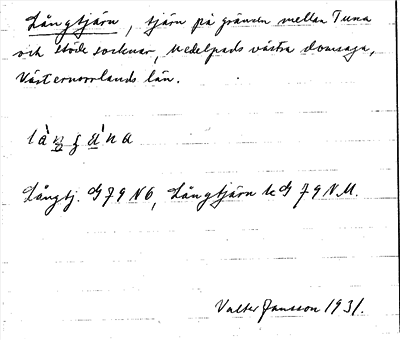 Långtjärn, tjärn på gränsen mellan Tuna
och Stöde socknar, Medelpads västra domsaga,
Västernorrlands län.
Långtj. G79 NO, Långtjärn k G 79 N.M.
Valter Jansson 1931.